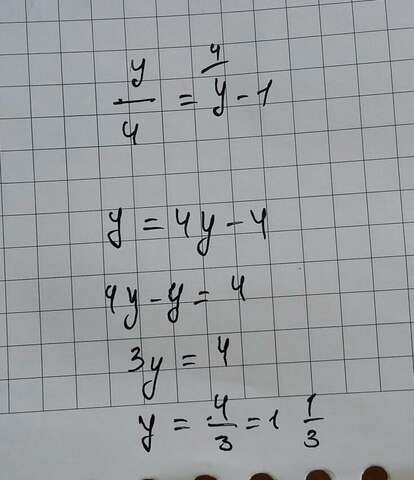 y/4 = 4/y - 1
y = 4y - 4
4y - y = 4
3y = 4
y = 4/3 = 1 1/3